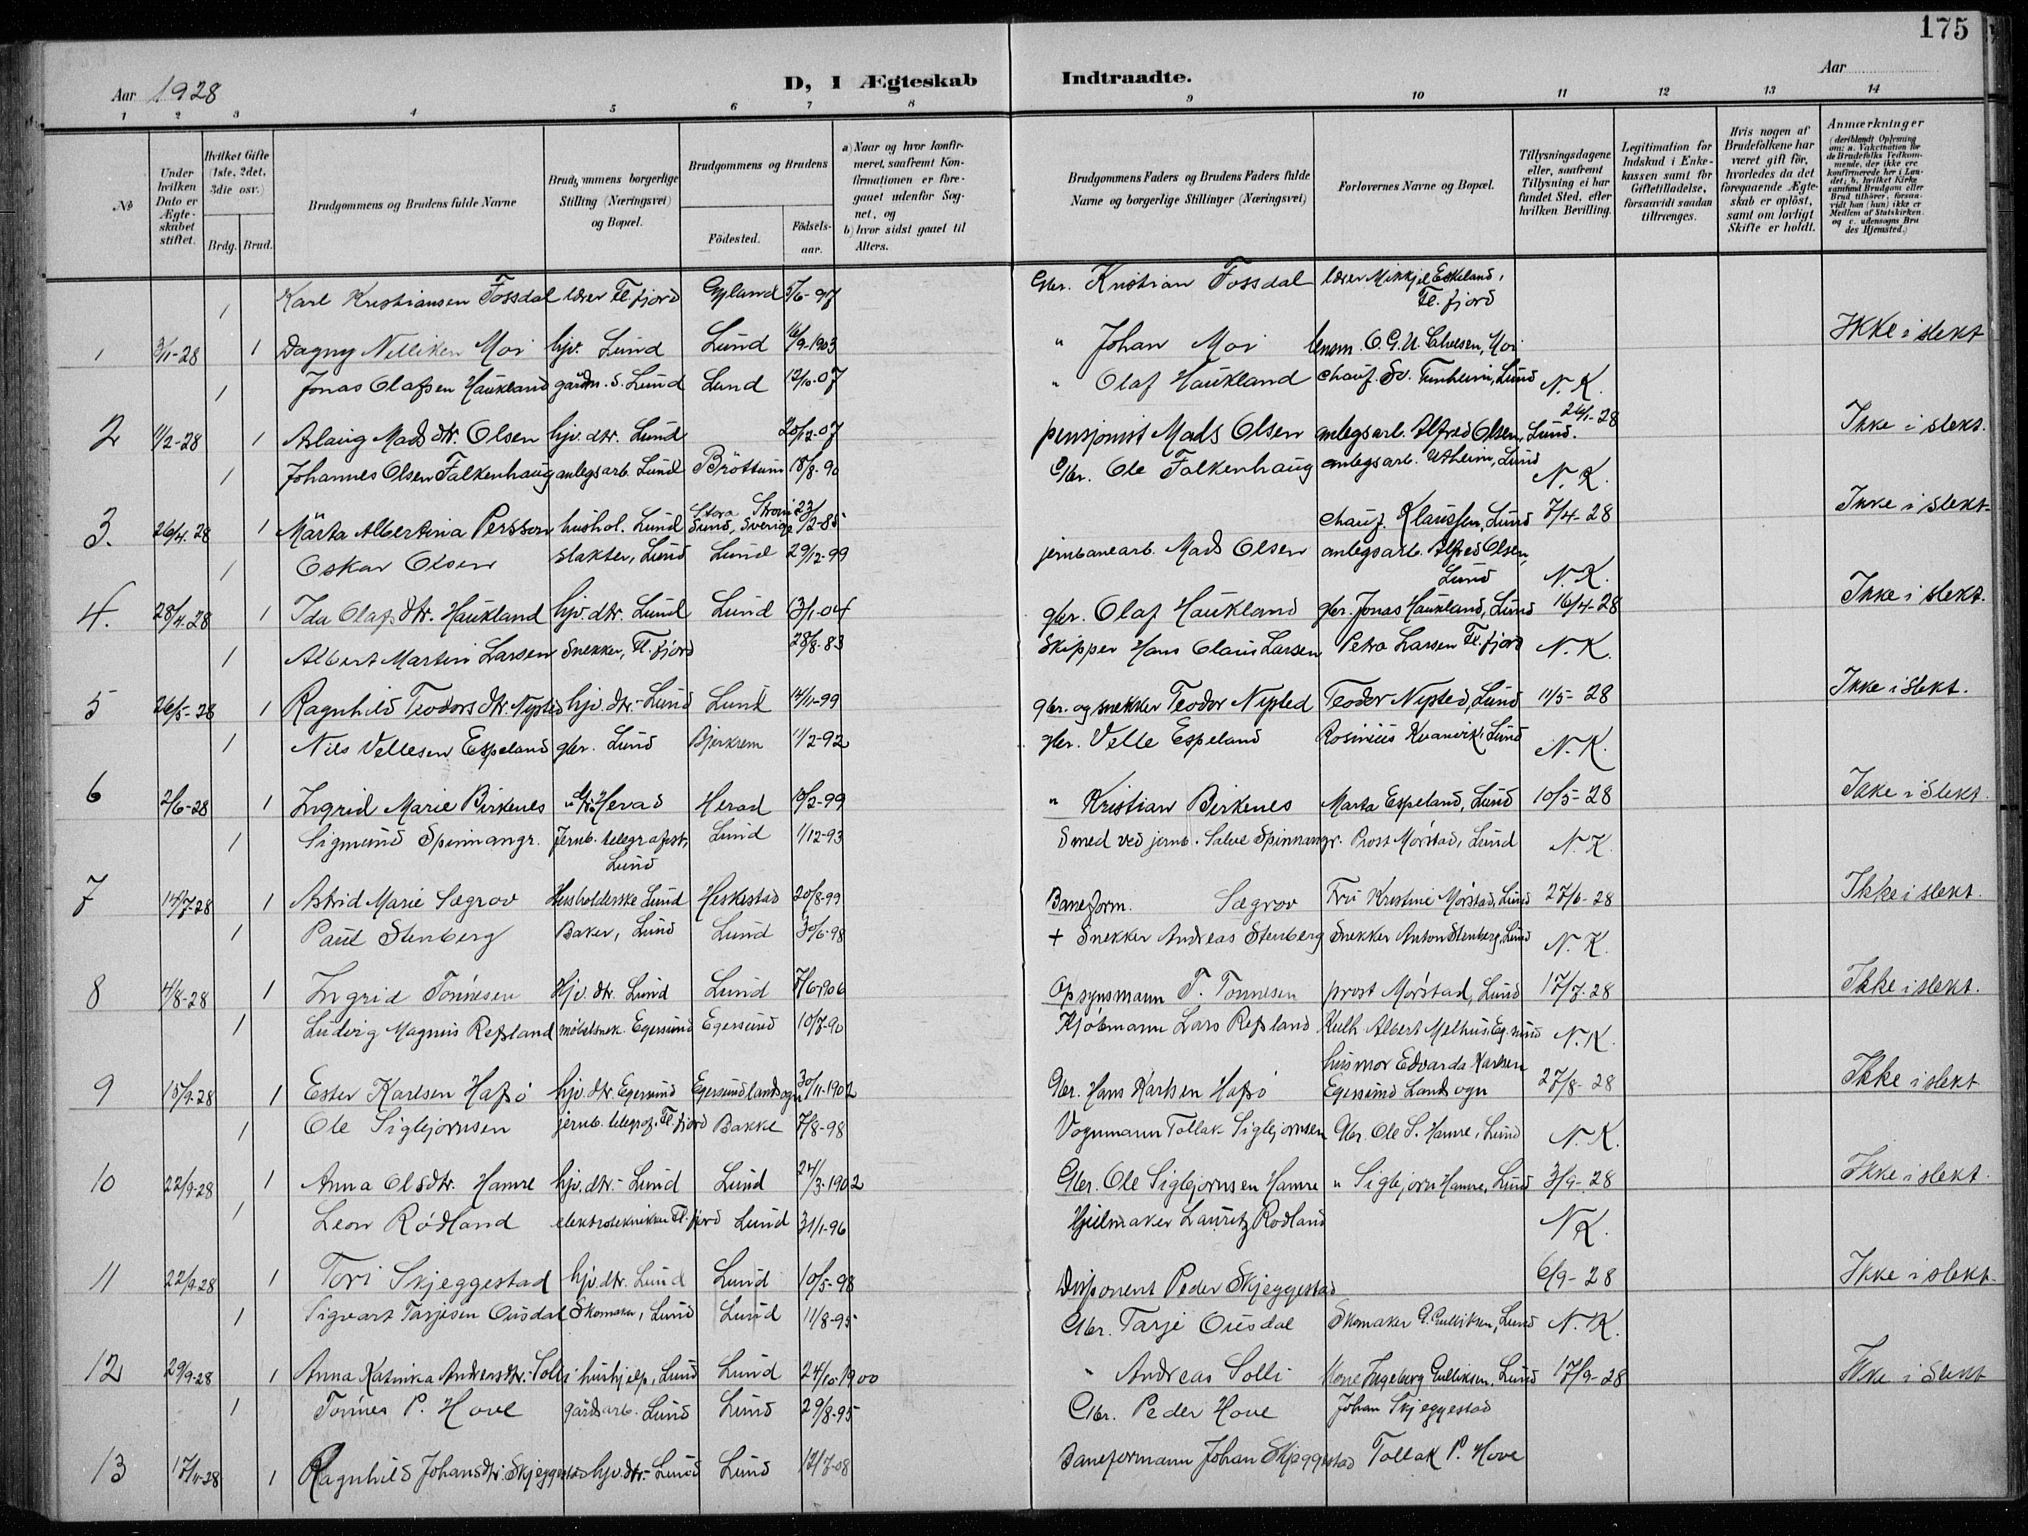 175
Aar 1928 D, I Ægteskab Indtraadte. Aar
1 2 3 4 5 6 7 8 9 10 11 12 13 14
№
Under hvilken Dato er Ægteskabet stiftet.
Hvilket Gifte (1ste, 2det, 3die osv.)
Brdg. Brud.
Brudgommens og Brudens fulde Navne
Brudgommens borgerlige Stilling (Næringsvei) og Bopæl.
Brudgommens og Brudens
Födested. Födselsaar.
a) Naar og hvor konfirmeret, saafremt Konfirmationen er foregaaet udenfor Sognet, og
b) hvor sidst gaaet til Alters.
Brudgommens Faders og Brudens Faders fulde Navne og borgerlige Stillinger (Næringsvei)
Forlovernes Navne og Bopæl.
Tillysningsdagene eller, saafremt Tillysning ei har fundet Sted, efter hvilken Bevilling.
Legitimation for Indskud i Enkekassen samt for Giftetilladelse, forsaavidt saadan tiltrænges.
Hvis nogen af Brudefolkene har været gift før, hvorledes da det foregaaende Ægteskab er oplöst, samt om lovligt Skifte er holdt.
Anmærkninger (deriblandt Oplysning om: a. Vakcination for de Brudefolks Vedkommende, der ikke ere konfirmerede her i Landet; b. hvilket Kirkesamfund Brudgom eller Brud tilhører, forsaavidt han (hun) ikke er Medlem af Statskirken, og c. udensogns Brudes Hjemsted.)
1 Karl Kristiansen Fossdal lærer Fl. fjord Gyland 5/6-97 Gbr. Kristian Fossdal lærer Mikkjel Eskeland, Fl. fjord
1 3/11-28 1 Dagny Nelliken Moi hjv. Lund Lund 16/9-1903 " Johan Moi O. G. U. Moi Ikke i slekt
1 Jonas Olafsen Haukland gårdm. s. Lund Lund 12/10-07 " Olaf Haukland chauf. Sv. Tunheim, Lund N. K.
2 11/2-28 1 Aslaug Mads dtr. Olsen hjv. dtr. Lund 20/12-07 pensjonist Mads Olsen anlegsarb. Alfred Olsen, Lund. 24/1-28 Ikke i slekt.
1 Johannes Olsen Falkenhaug anlegsarb. Lund Bröttum 18/8-90 Gbr. Ole Falkenhaug anlegsarb. Utheim, Lund N. K.
3. 26/4-28 1 Märta Albertina Persson hushol. Lund Stora Sund, Sverige 23/2-85 chauf. Klaussen, Lund 7/4-28 Ikke i slekt.
1 Oskar Olsen slakter, Lund Lund 29/12-99 jernbanearb. Mads Olsen anlegsarb. Alfred Olsen, Lund N. K.
4. 28/4-28 1 Ida Olafs dtr. Haukland hjv. dtr. Lund Lund 13/1-04 gbr. Olaf Haukland gbr. Jonas Haukland, Lund 16/4-28 Ikke i slekt.
1 Albert Martin Larsen Snekker, Fl. fjord 28/8-83 Skipper Hans Olaus Larsen Petra Larsen Fl. fjord N. K.
5 26/5-28 1 Ragnhild Teodors dtr. Nysted hjv. dtr. Lund Lund 14/11-99 gbr. og snekker Teodor Nysted Teodor Nysted, Lund 11/5-28 Ikke i slekt.
1 Nils Vellesen Espeland gbr. Lund Bjerkrem 11/2-92 gbr. Velle Espeland Rosinius Kvanvik, Lund N. K.
6 2/6-28 1 Ingrid Marie Birkenes Herad Herad 18/2-99 " Kristian Birkenes Marta Espeland, Lund 10/5-28 Ikke i slekt.
1 Sigmund Spinnangr. Jernb. telegrafist, Lund Lund 1/12-93 Smed ved jernb. Salve Spinnangr. Prost Mørstad, Lund N. K.
7 14/7-28 1 Astrid Marie Sægrov Husholderske Lund Heskestad 20/8-99 Baneform. Sægrov Fru Kristine Mørstad, Lund 27/6-28 Ikke i slekt.
1 Paul Stenberg Baker, Lund Lund 30/6-98 + Snekker Andreas Stenberg Snekker Anton Stenberg, Lund N. K.
8 4/8-28 1 Ingrid Tönnesen Hjv. dtr. Lund Lund 7/6-1906 Opsynsmann T. Tonnesen prost Mørstad, Lund 17/7-28 Ikke i slekt.
1 Ludvig Magnus Refsland møbelsnek. Egersund Egersund 10/7-90 Kjøbmann Lars Refsland Albert Melhus, Eg. sund N. K.
9 15/9-28 1 Ester Karlsen Hafsø hjv. dtr. Egersund Egersund landsogn 30/11-1902 Gbr. Hans Karlsen Hafsø husmor Edvarda Karlsen Egersund Landsogn 27/8-28 Ikke i slekt
1 Ole Sigbjornsen jernb. telegraf. Fl. fjord Bakke 7/8-98 Vognmann Tollak Sigbjornsen Gbr. Ole S. Hamre, Lund N. K.
10 22/9-28 1 Anna Olsdtr. Hamre hjv. dtr. Lund Lund 24/3-1902 Gbr. Ole Sigbjornsen Hamre " Sigbjorn Hamre, Lund 3/9-28 Ikke i slekt.
1 Leon Rødland elektrotekniker Fl. fjord Lund 31/1-96 Hjulmaker Lauritz Rodland N. K.
11 22/9-28 1 Tori Skjeggestad hjv. dtr. Lund Lund 10/5-98 Disponent Peder Skjeggestad 6/9-28 Ikke i slekt.
1 Sigvart Tarjesen Ousdal Skomaker, Lund Lund 11/8-95 Gbr. Tarje Ousdal Skomaker G. Gulliksen, Lund N. K.
12 29/9-28 1 Anna Katinka Andersdtr. Solli hushjelp, Lund Lund 24/10-1900 " Andreas Solli Kone Ingeborg Gulliksen, Lund 17/9-28 Ikke i slekt
1 Tönnes P. Hove gårdsarb. Lund Lund 29/8-95 Gbr. Peder Hove Johan Skjeggestad
13 17/11-28 1 Ragnhild Johansdtr. Skjeggestad hjv. dtr. Lund Lund 12/7-08 Baneformann Johan Skjeggestad Tollak P. Hove